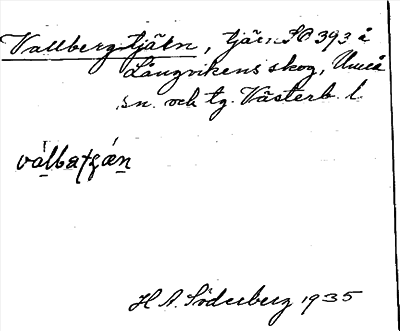 Vallbergtjärn, tjärn SO 393 å
Långvikens skog, Umeå
sn. och tg. Västerb. l.
válbatʒán
H A. Söderberg 1935